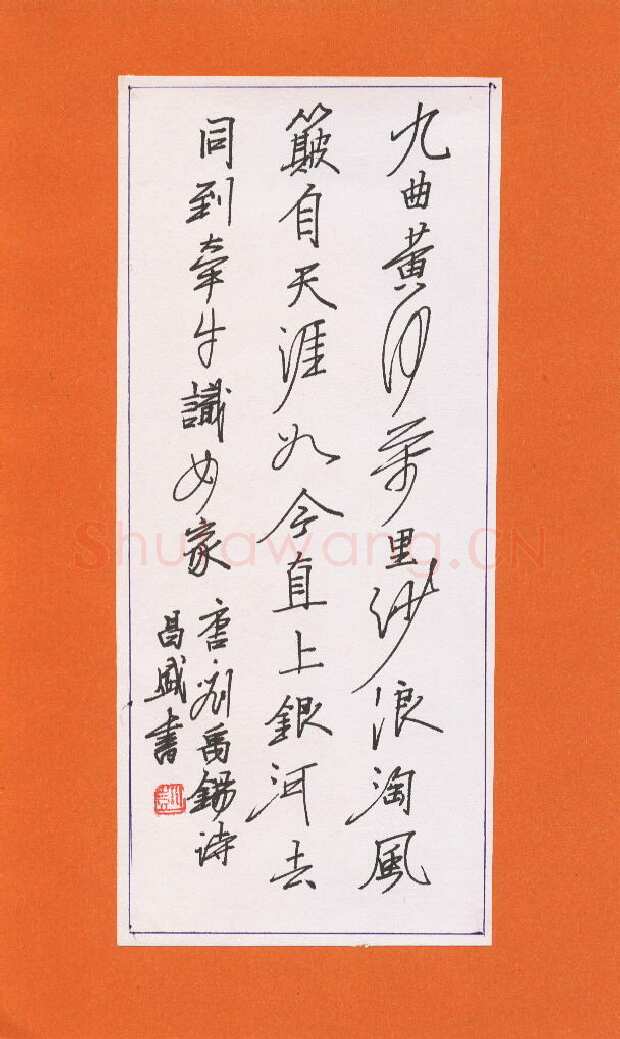 九曲黄河萬里沙浪淘風
簸自天涯如今直上銀河去
同到牽牛識女家 唐·刘禹錫诗
昌盛書
Shufawang.CN